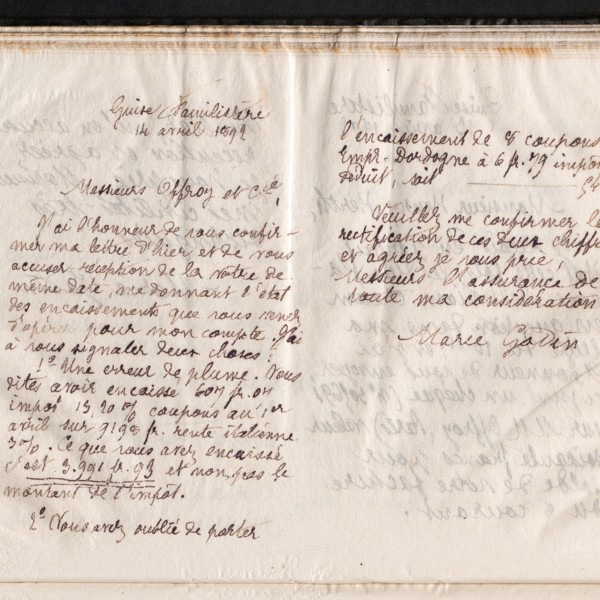 Guise Familistère
14 avril 1892
Messieurs Offroy et Cie,
J'ai l'honneur de vous confir-
mer ma lettre d'hier et de vous
accuser réception de la vôtre de
même date, me donnant l'état
des encaissements que vous venez
d'opérer pour mon compte. J'ai
à vous signaler deux choses:
1° Une erreur de plume. Vous
dites avoir encaissé 607 fr. 07
impôt 13,20 % coupons au 1er
avril sur 9198 fr. rente italienne
3%. Ce que vous avez encaissé
c'est 3.991 fr. 93 et non pas le
montant de l'impôt.
2° Vous avez oublié de porter
l'encaissement de 8 coupons
Empr. Dordogne à 6 fr. 79 impôt
déduit, soit 54
Veuillez me confirmer la
rectification de ces deux chiffres
et agréer je vous prie,
Messieurs l'assurance de
toute ma considération
Marie Godin